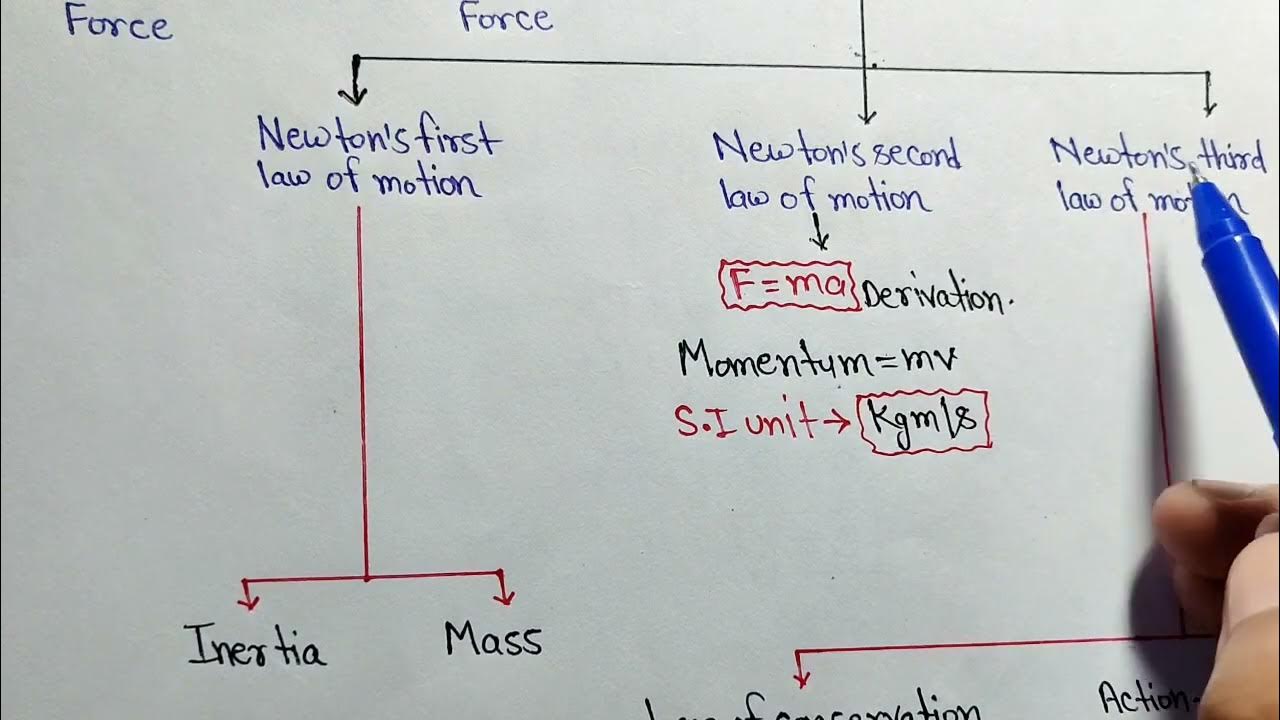 Force
Force
Newton's first
law of motion
Newton's second
law of motion
Newton's third
law of motion
F = ma Derivation.
Momentum = mv
S.I unit → Kgm/s
Inertia
Mass
Law of conservation
Action-